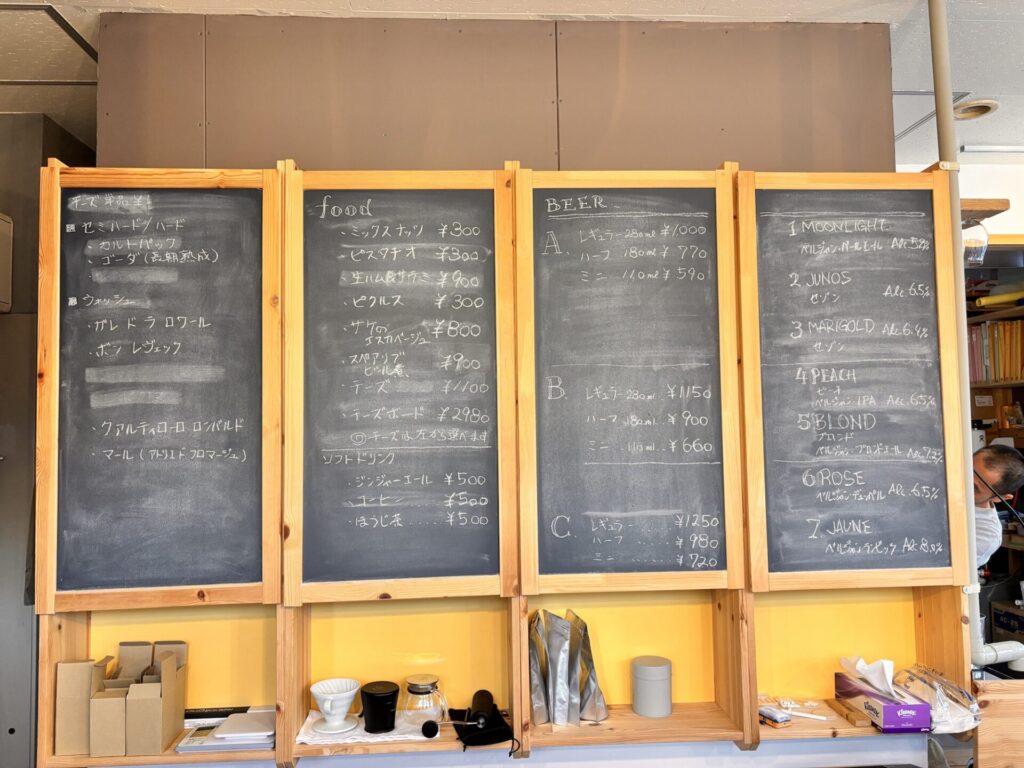 チーズ 単品
セミハード/ハード
・カルトバック
・ゴーダ(長期熟成)
ウォッシュ
・ガレ ド ラ ロワール
・ポン レヴェック
・クアルティローロ ロンバルド
・マール (アトリエ ド フロマージュ)
food
・ミックスナッツ ¥300
・ピスタチオ ¥300
・生ハム&サラミ ¥900
・ピクルス ¥300
・サケの
エスカベージュ ¥800
・スペアリブ
ビール煮 ¥900
・チーズ ¥1100
・チーズボード ¥2980
◎チーズは左から選べます
ソフトドリンク
・ジンジャーエール ¥500
・コーヒー ¥500
・ほうじ茶 ..... ¥500
BEER
A. レギュラー 280ml ¥1000
ハーフ 180ml ¥770
ミニ 110ml ¥590
B. レギュラー 280ml ¥1150
ハーフ 180ml ¥900
ミニ 110ml .. ¥660
C. レギュラー ..... ¥1250
ハーフ ...... ¥980
ミニ ...... ¥720
1 MOONLIGHT
ベルジャン・ペールエイル Alc 5.2%
2 JUNOS
セゾン Alc 6.5%
3 MARIGOLD Alc 6.4%
セゾン
4 PEACH
ピーチ
ベルジャン IPA Alc 6.5%
5 BLOND
ブロンド
ベルジャン・ブロンドエール Alc 7.2%
6 ROSE
ベルジャン デュッベル Alc 6.5%
7 JAUNE
ベルジャン トリペック Alc 8.0%
Kleenex
AC-25